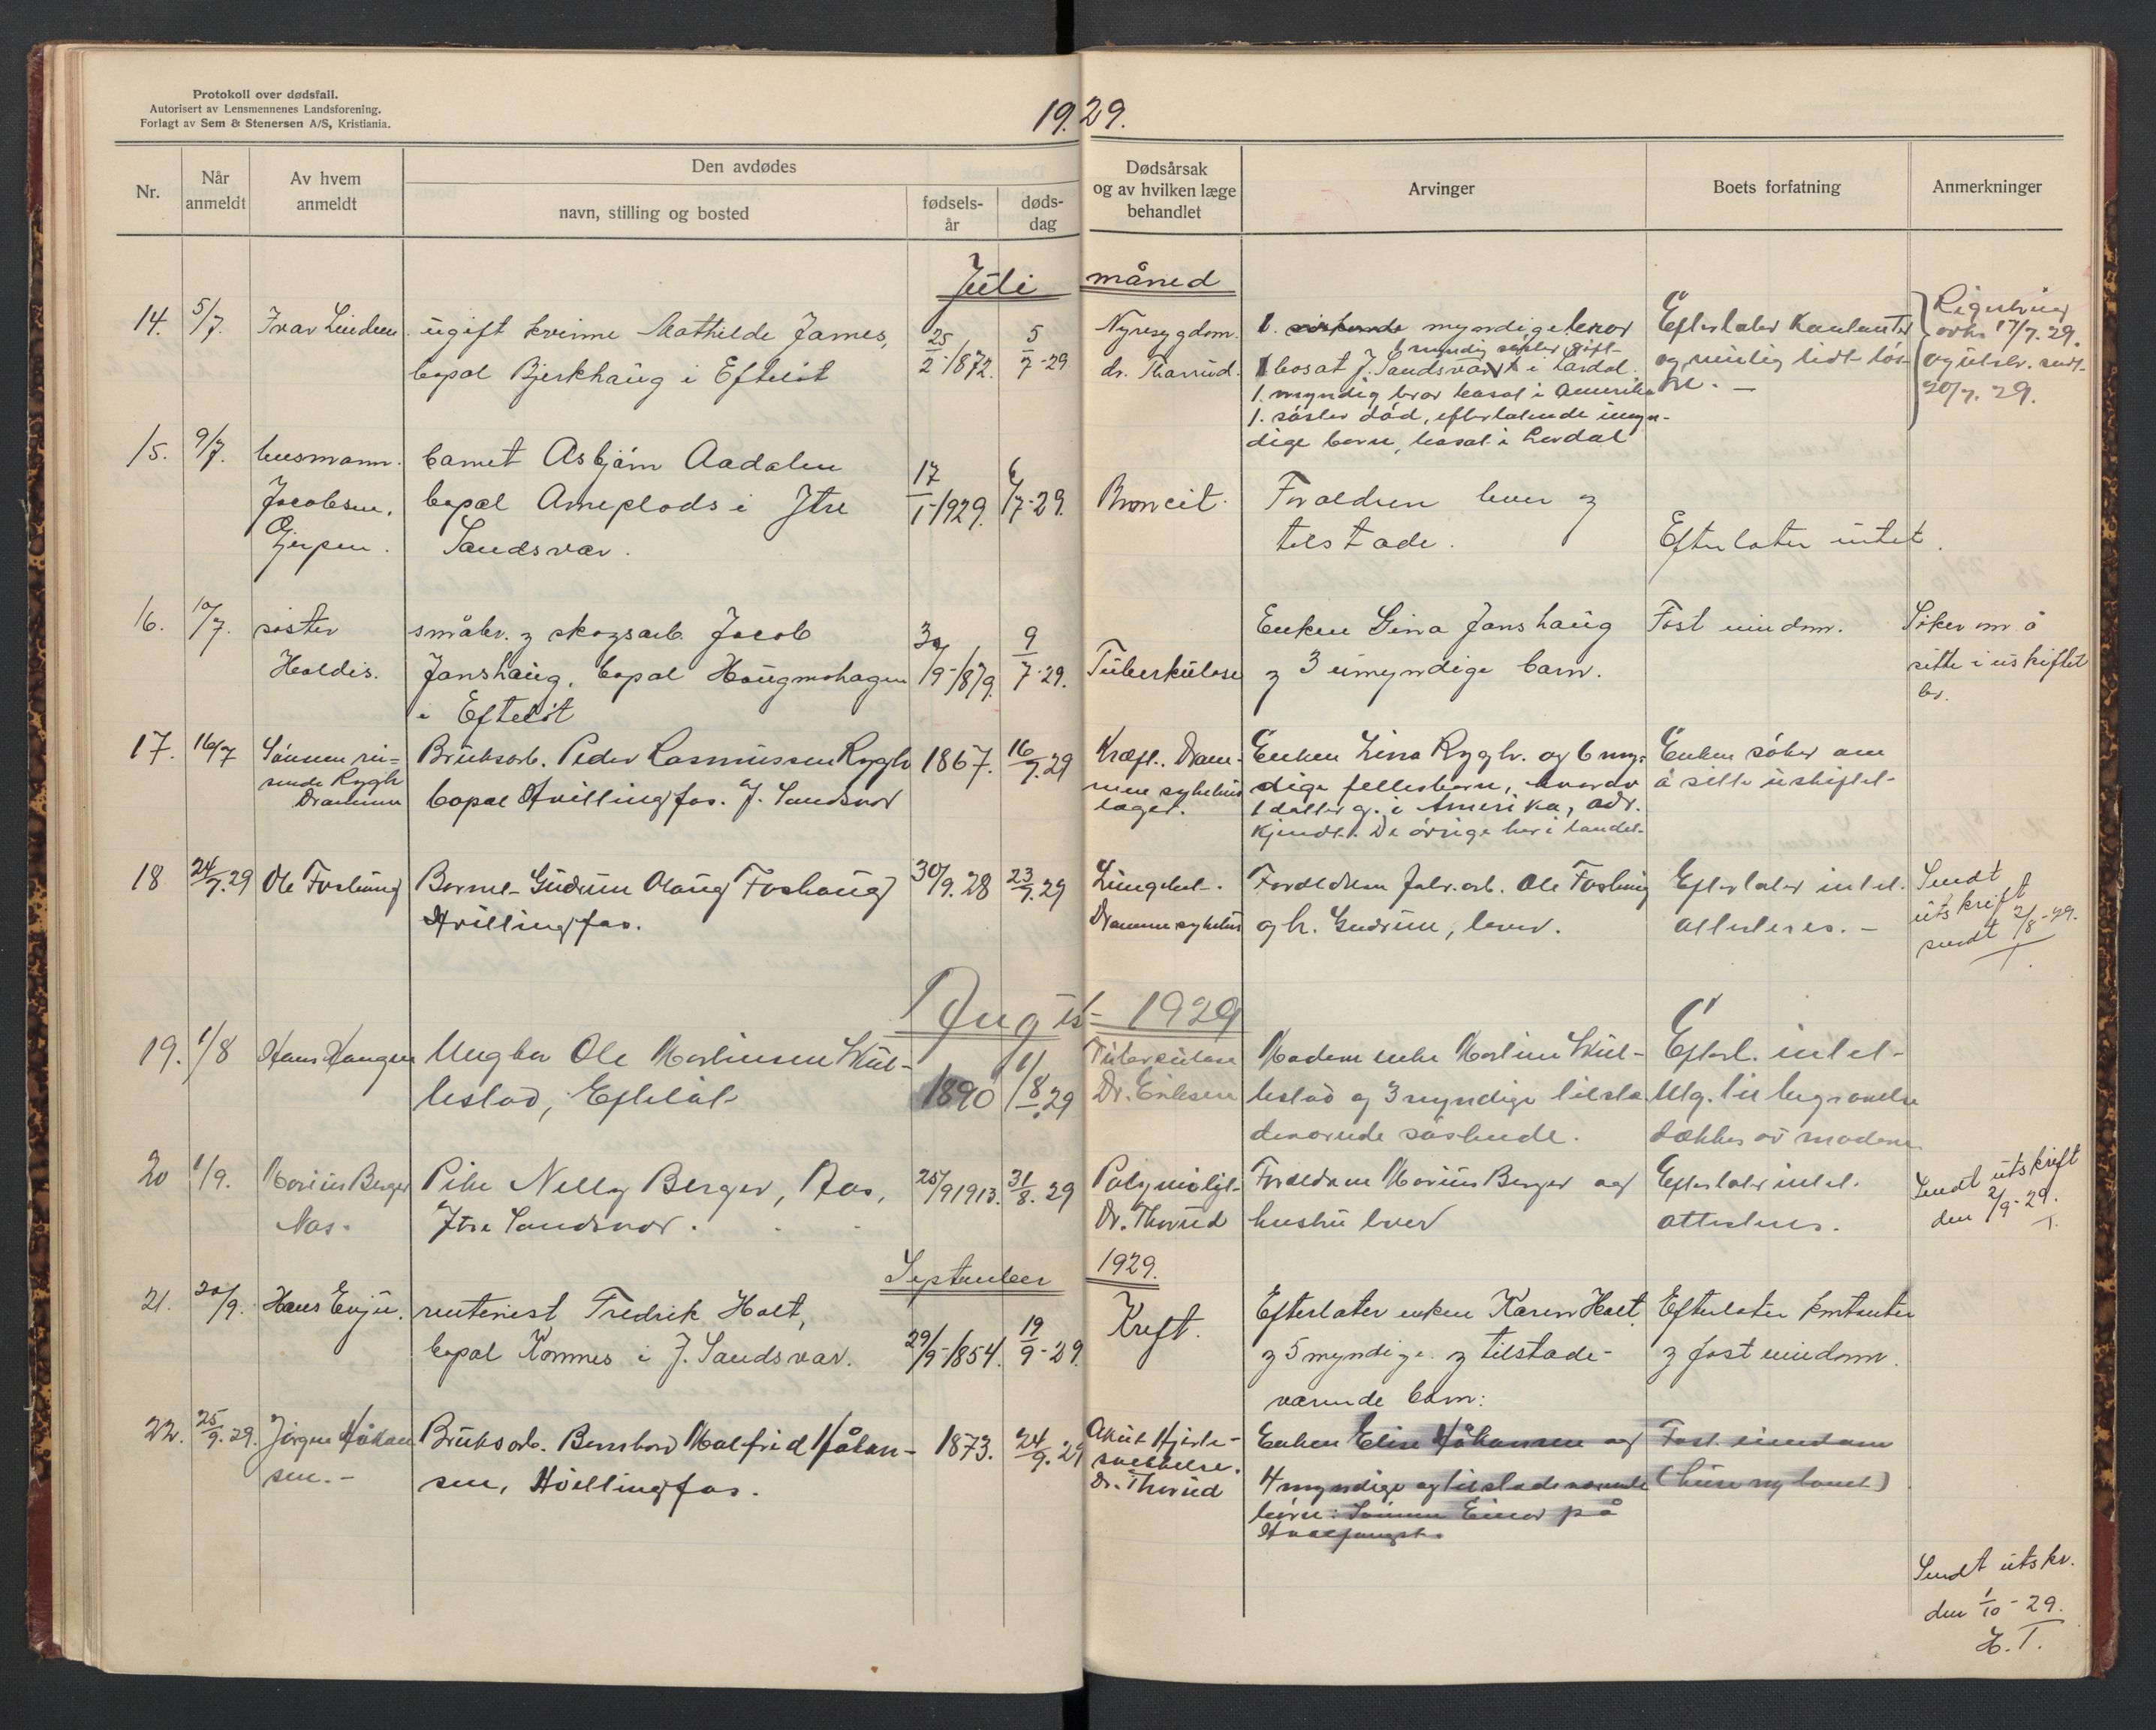 Protokoll over dødsfall.
Autorisert av Lensmennenes Landsforening.
Forlagt av Sem & Stenersen A/S, Kristiania.
1929.
Nr.
Når anmeldt
Av hvem anmeldt
Den avdødes
navn, stilling og bosted
fødsels-år
døds-dag
Dødsårsak og av hvilken læge behandlet
Arvinger
Boets forfatning
Anmerkninger
Juli måned
14. 5/7. Ivar Linden ugift kvinne Mathilde James,
bopæl Bjerkhaug i Efteløt
25/2-1872. 5/7-29
Nyresygdom.
dr. Tharud.
1. myndige bror
1 myndig søster, gift
bosat J. Sandsvær i Lardal.
1. myndig bror bosat i Amerika
1. søster død, efterlatende umyn-
dige barn, bosat i Lardal
Efterlater kontanter
og litt løs-
øre. —
17/7. 29.
og utskr. sendt
20/7. 29.
15. 9/7. husmann
Jacobsen,
Gjerpen.
barnet Asbjørn Aadalen
bopæl i Ytre
Sandsvær.
17/1-1929. 6/7-29.
Broncit.
Forældren lever og
tilstæde.
Efterlater intet.
16. 10/7. søster
Haldis.
småbr. og skogsarb. Jacob
Janshaug, bopæl Haugmohagen
i Efteløt
30/9-1879. 9/7-29.
Tuberkulose
Enken Gina Janshaug
og 3 umyndige barn.
Fast eiendom.
Søker om å
sitte i uskiftet
bo.
17. 16/7 Sønnen
Rygh
Drammen
Bruksarb. Peder Rasmussen Rygh
bopæl Hvillingfos. Y. Sandsvær
1867. 16/7.29
Kræft. Dram-
men sykehus
laget.
Enken Lina Rygh. og 6 myn-
dige fellesbarn, hvorav
1 datter g. i Amerika, adr.
kjendt. De øvrige her i landet.
Enken søker om
å sitte uskiftet
18 24/7.29 Ole Foshaug Barnet Gudrun Olaug Foshaug
Hvillingfos.
30/9.28 23/7.29
Lungebet.
Drammen sykehus
Foreldrene fabr.arb. Ole Foshaug
og h. Gudrun, lever.
Efterlater intet.
attesteres. —
Sendt
utskrift
sendt 2/8-29.
T.
August 1929
19. 1/8 Hans Haugen Ungkar Ole Martinsen Skul-
lestad, Efteløt
1890 1/8.29
Tuberkulose
Dr. Eriksen
Moderen enke Martine Skul-
lestad og 3 myndige tilste-
deværende søskende.
Efterl. intet
Utg. til begravelse
dækkes av moderen
20 1/9. Marius Berger
Aas.
Pike Nelly Berger, Aas,
Ytre Sandsvær.
25/9 1913. 31/8. 29
Dr. Tharud
Foreldrene Marius Berger og
hustru lever
Efterlater intet.
attesteres.
Sendt utskrift
den 2/9-29.
T.
September 1929.
21. 20/9. Hans Enju. rentenist Fredrik Holt,
bopæl Komnes i Y. Sandsvær.
29/9-1854. 19/9-29.
Kreft.
Efterlater enken Karen Holt
og 5 myndige og tilstæde-
værende barn:
Efterlater kontanter
og fast eiendom.
22. 25/9.29. Jørgen Håkan
sen. -
Bruksarb. Bernhard Malfrid Håkan-
sen, Hvillingfos.
1873. 24/9.29
Akut Hjerte-
svekkelse.
Dr. Tharud
Enken Elise Håkansen og
4 myndige og tilstedeværende
børn: Sønnen Einar på
Hvalfangst.
Fast eiendom
(huse og tomt)
Sendt utskr.
den 1/10-29.
H. T.